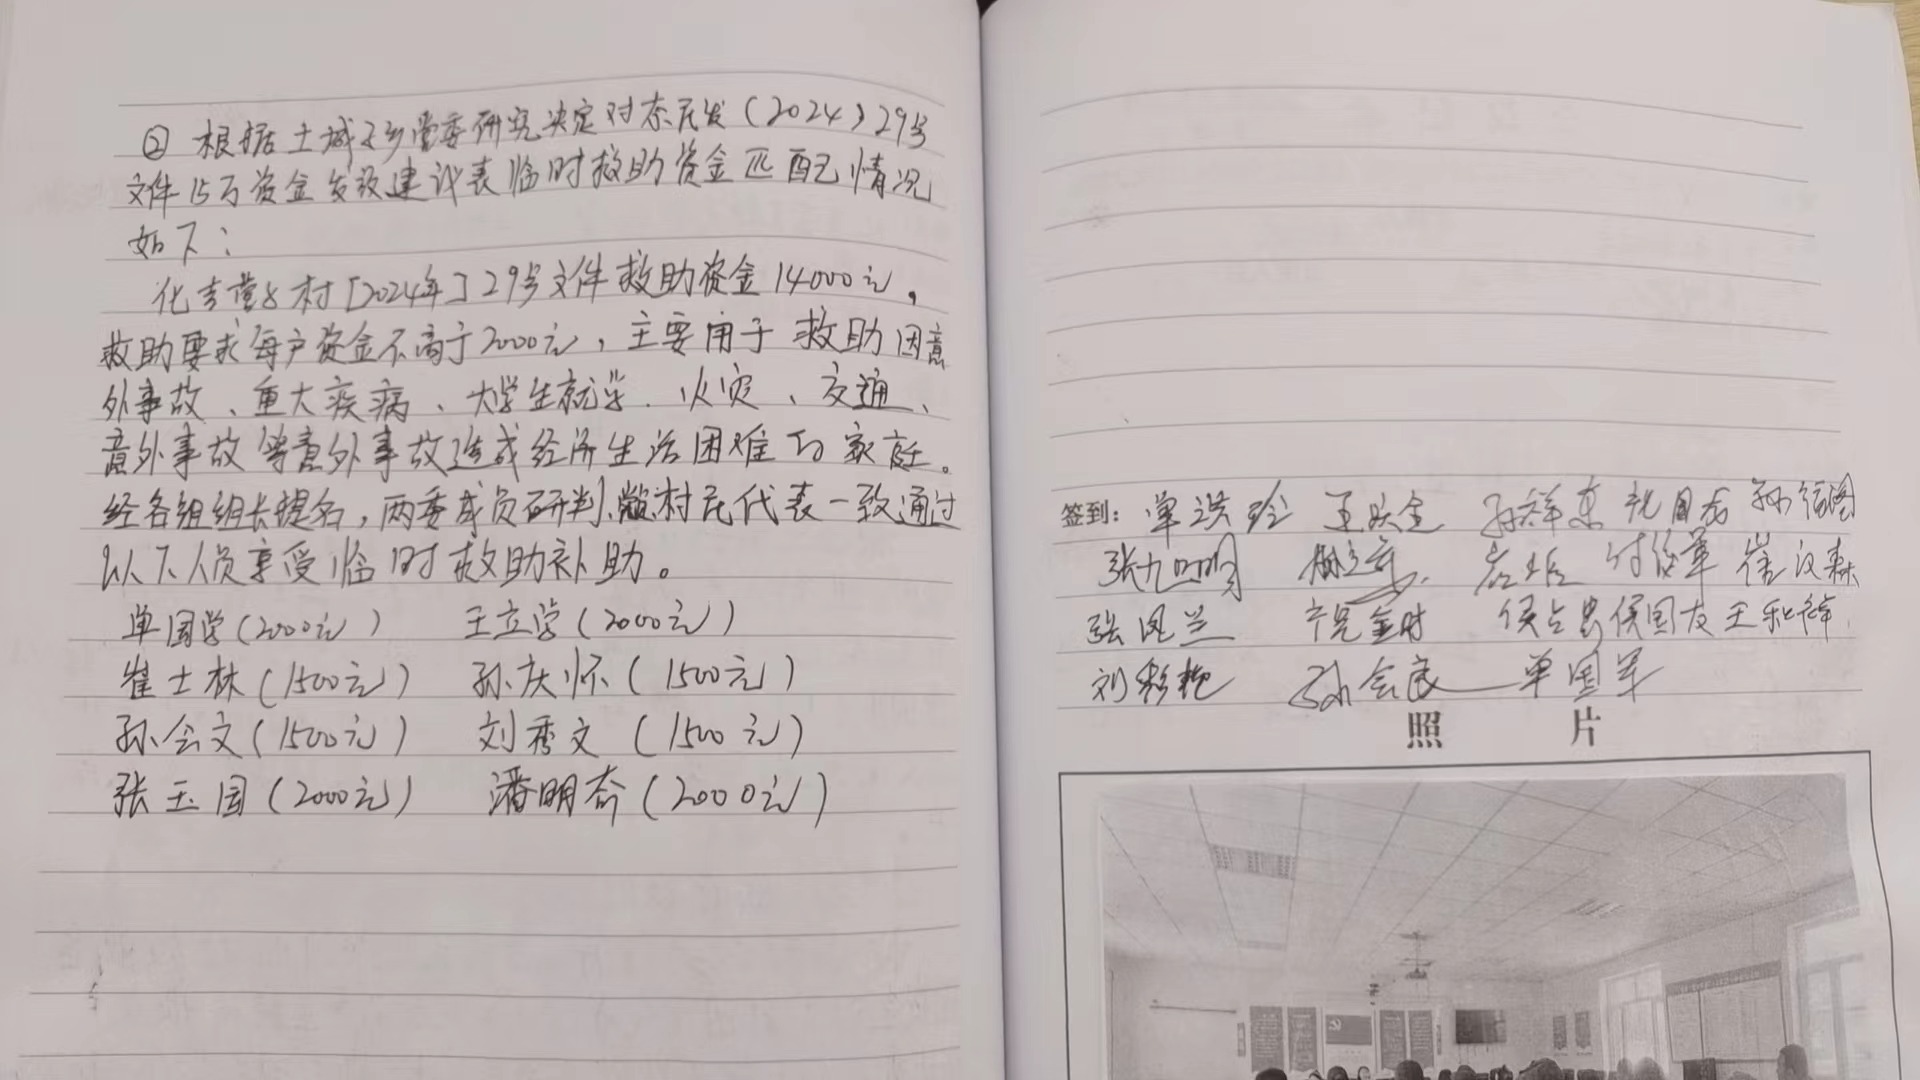 ② 根据土城子乡党委研究决定对承民发(2024)29号
文件15万资金发放建议表临时救助资金匹配情况
如下:
化吉营村[2024年]29号文件救助资金14000元,
救助要求每户资金不高于2000元,主要用于救助因意
外事故、重大疾病、大学生就学、火灾、交通、
意外事故等意外事故造成经济生活困难的家庭。
经各组组长提名,两委成员研判、村民代表一致通过
以下人员享受临时救助补助。
单国学(2000元) 王立学(2000元)
崔士林(1500元) 孙庆怀(1500元)
孙会文(1500元) 刘秀文(1500元)
张玉国(2000元) 潘明奇(2000元)
签到: 单洪玲 孙祥东
张九明 付俊军 崔汉森
张凤兰 侯占忠 侯国友
刘彩艳 孙会民 单国军
照片